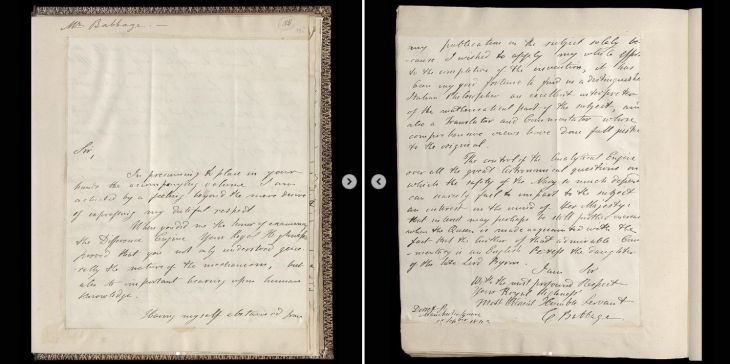 Mr Babbage. —
Sir,
In presuming to place in your
hands the accompanying volume I am
actuated by a feeling beyond the mere desire
of expressing my dutiful respect
When you did me the honor of examining
the Difference Engine Your Royal Highness
proved that you not only understood gene-
rally the nature of the mechanism, but
also its important bearing upon human
knowledge.
Having myself abstained from
any publication on the subject solely be-
cause I wished to apply my whole efforts
to the completion of the invention, it has
been my good fortune to find in a distinguished
Italian Philosopher an excellent interpreter
of the mathematical part of the subject, and
also a Translator and Commentator whose
comprehensive views have done full justice
to the original.
The control of the Analytical Engine
over all the great Astronomical questions on
which the safety of the Navy so much depends
can scarcely fail to impart to the subject
an interest in the mind of Her Majesty:
that interest may perhaps be still further increased
when the Queen is made acquainted with the
fact that the author of that admirable Com-
mentary is an English Peeress the daughter
of the late Lord Byron.
I am Sir
With the most profound Respect
Your Royal Highness'
Most Obedient Humble Servant
C Babbage
Dorset St
Manchester Square